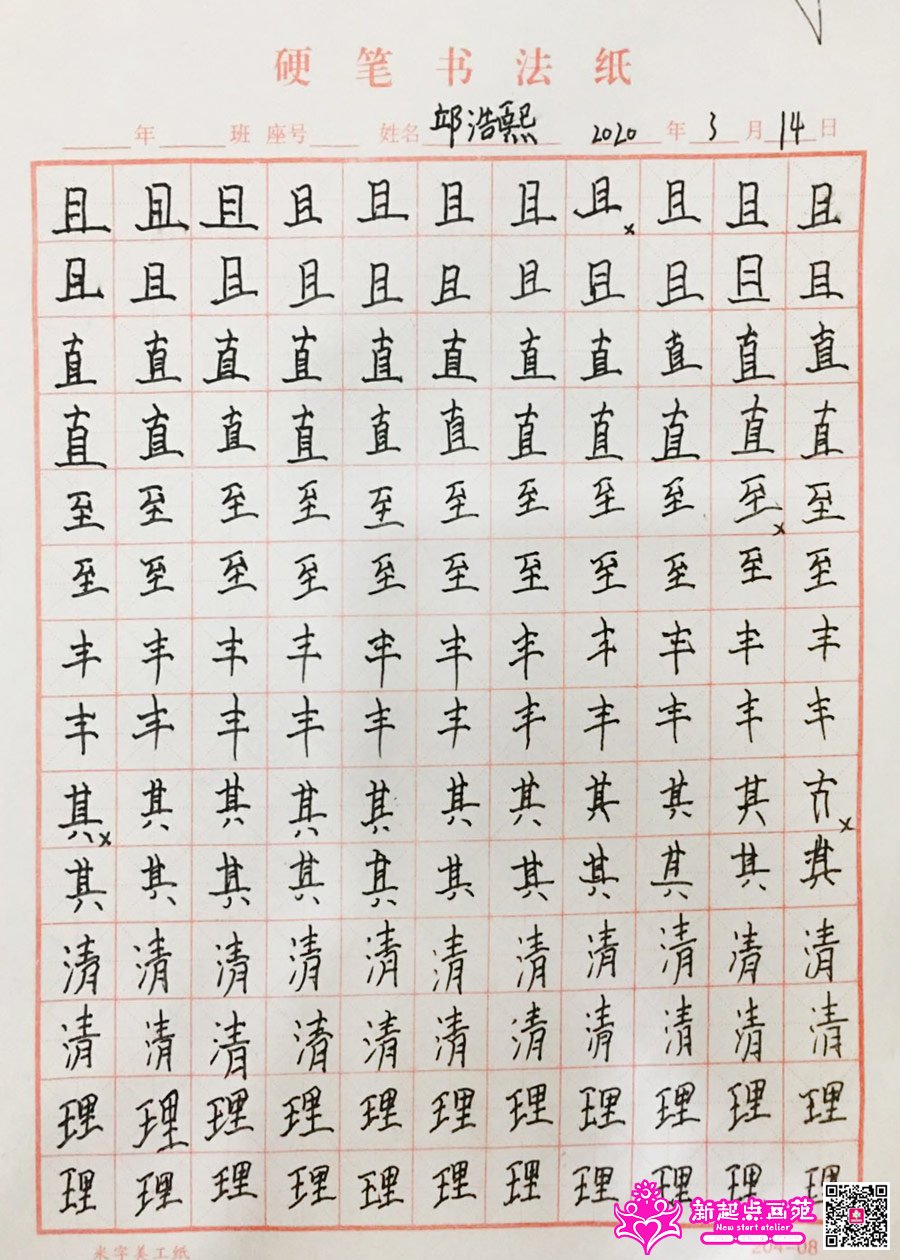 硬笔书法纸
年 班 座号 姓名 邱浩熙 2020 年 3 月 14 日
且且且且且且且且x且且且
且且且且且且且且且且且
直直直直直直直直直直直
直直直直直直直直直直直
至至至至至至至至至至x至
至至至至至至至至至至至
丰丰丰丰丰丰丰丰丰丰丰
丰丰丰丰丰丰丰丰丰丰丰
其x其其其其其其其其其古x
其其其其其其其其其其其
清清清清清清清清清清清
清清清清清清清清清清清
理理理理理理理理理理理
理理理理理理理理理理理
米字美工纸 204-08
新起点画苑
New start atelier